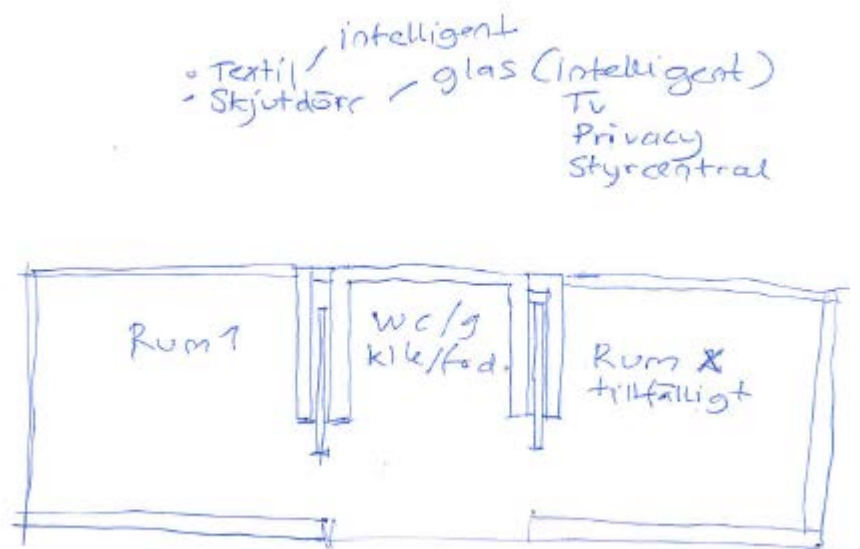 • Textil / intelligent
• Skjutdörr / glas (intelligent)
Tv
Privacy
Styrcentral
Rum 1
WC/g
klk/fod.
Rum X
tillfälligt